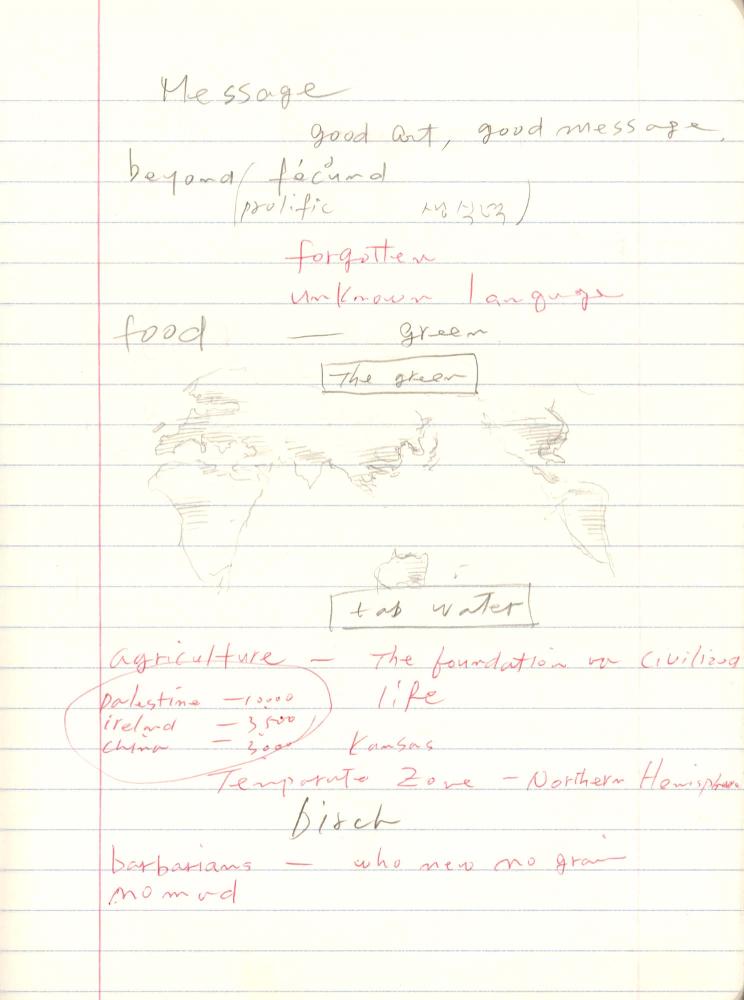 Message
good art, good message,
beyond / fécund
(prolific 생식력)
forgotten
unknown language
food — green
The green
tap water
agriculture — The foundation
life
palestine — 10000
ireland — 3,500
china — 3,000
Kansas
Temparate Zone — Northern Hemisphere
birch
barbarians — who new no grain
nomad